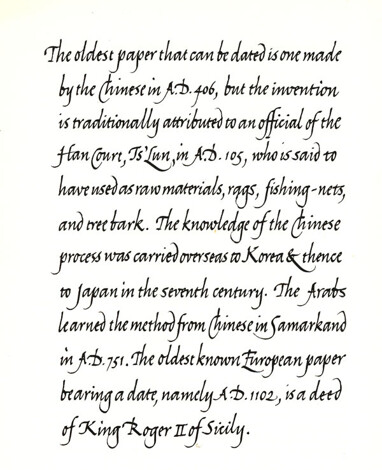 The oldest paper that can be dated is one made
by the Chinese in A.D. 406, but the invention
is traditionally attributed to an official of the
Han Court, Ts'Lun, in A.D. 105, who is said to
have used as raw materials, rags, fishing-nets,
and tree bark. The knowledge of the Chinese
process was carried overseas to Korea & thence
to Japan in the seventh century. The Arabs
learned the method from Chinese in Samarkand
in A.D. 751. The oldest known European paper
bearing a date, namely A.D. 1102, is a deed
of King Roger II of Sicily.